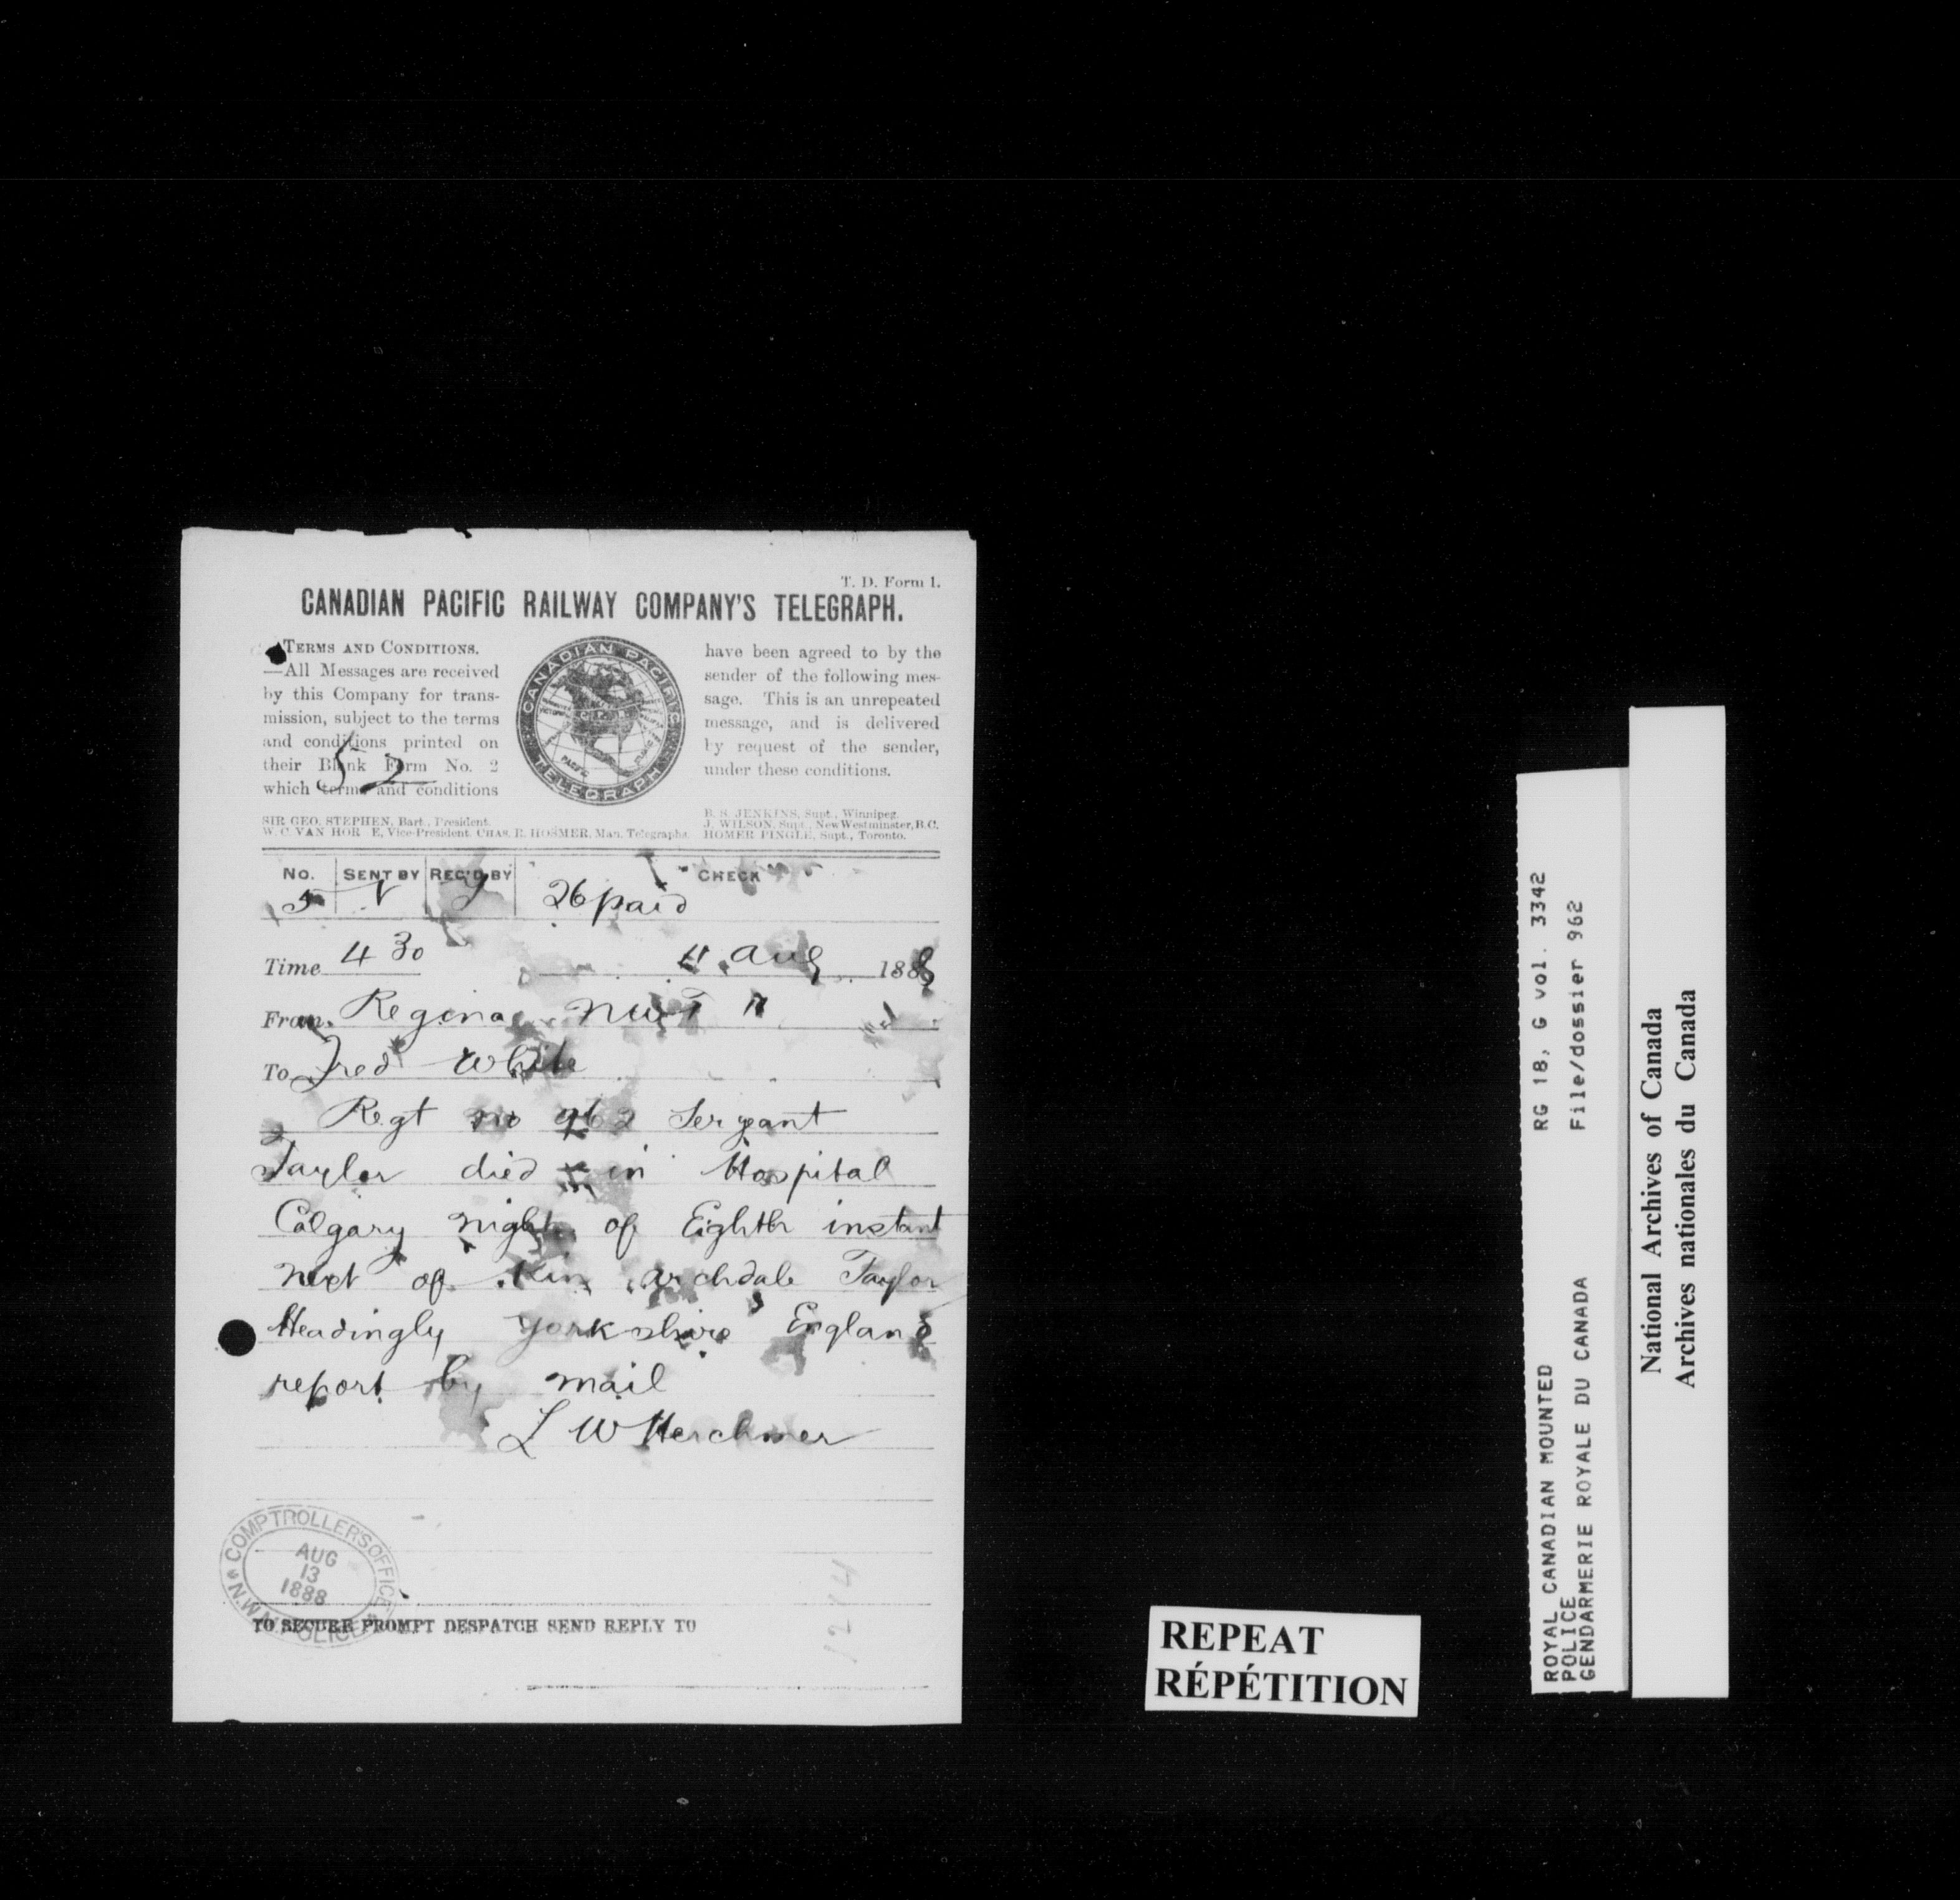 T. D. Form 1.
CANADIAN PACIFIC RAILWAY COMPANY'S TELEGRAPH.
TERMS AND CONDITIONS.
—All Messages are received
by this Company for trans-
mission, subject to the terms
and conditions printed on
their Blank Form No. 2
which terms and conditions
52
CANADIAN PACIFIC
TELEGRAPH
have been agreed to by the
sender of the following mes-
sage. This is an unrepeated
message, and is delivered
by request of the sender,
under these conditions.
SIR GEO. STEPHEN, Bart., President.
W. C. VAN HOR E, Vice-President. CHAS. R. HOSMER, Man. Telegraphs.
B. S. JENKINS, Supt., Winnipeg.
J. WILSON, Supt., New Westminster, B.C.
HOMER PINGLE, Supt., Toronto.
No. SENT BY REC'D BY CHECK
5 26 paid
Time 4 30 11 Aug 1888
From Regina NWT 11
To Fred White
Regt no 962 Sergeant
Taylor died in Hospital
Calgary night of Eighth instant
next of kin archdale Taylor
Headingly Yorkshire England
report by mail
L W Herchmer
COMPTROLLERS OFFICE
AUG
13
1888
N. W. M. POLICE
TO SECURE PROMPT DESPATCH SEND REPLY TO
1244
REPEAT
RÉPÉTITION
ROYAL CANADIAN MOUNTED
POLICE
GENDARMERIE ROYALE DU CANADA
RG 18, G vol. 3342
File/dossier 962
National Archives of Canada
Archives nationales du Canada